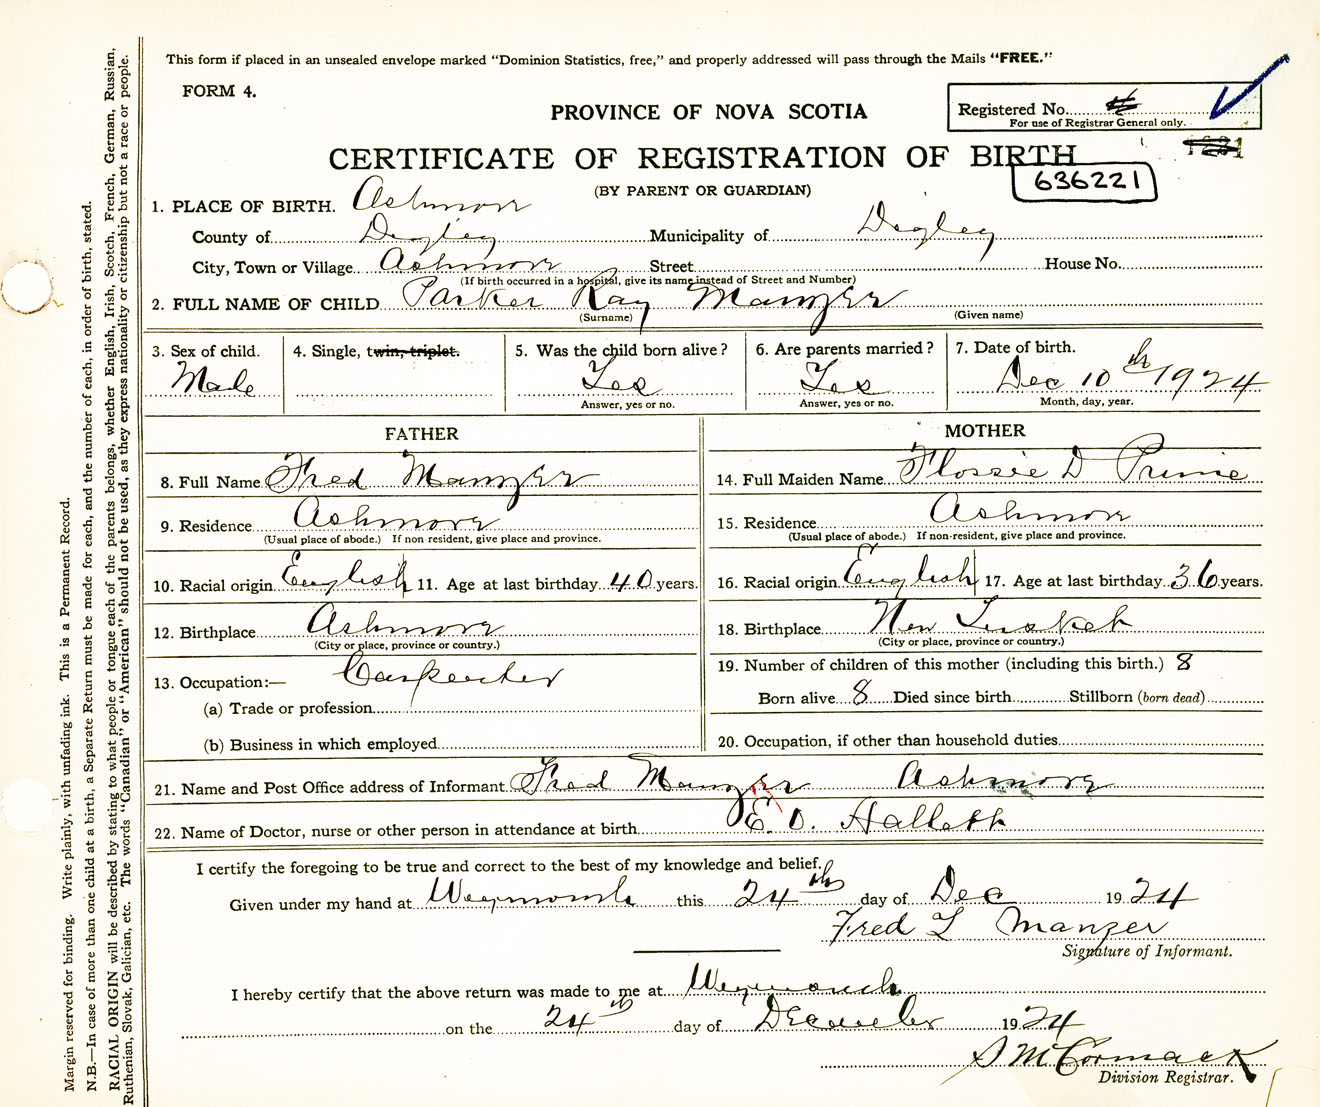 This form if placed in an unsealed envelope marked “Dominion Statistics, free,” and properly addressed will pass through the Mails “FREE.”
FORM 4.
Registered No.
For use of Registrar General only.
PROVINCE OF NOVA SCOTIA
CERTIFICATE OF REGISTRATION OF BIRTH
636221
(BY PARENT OR GUARDIAN)
1. PLACE OF BIRTH. Ashmore
County of Digby Municipality of Digby
City, Town or Village Ashmore Street House No.
(If birth occurred in a hospital, give its name instead of Street and Number)
2. FULL NAME OF CHILD Parker Ray Manzer
(Surname) (Given name)
3. Sex of child. 4. Single, twin, triplet. 5. Was the child born alive? 6. Are parents married? 7. Date of birth.
Male Yes Yes Dec 10th 1924
Answer, yes or no. Answer, yes or no. Month, day, year.
FATHER MOTHER
8. Full Name Fred Manzer 14. Full Maiden Name Flossie D Prime
9. Residence Ashmore 15. Residence Ashmore
(Usual place of abode.) If non resident, give place and province. (Usual place of abode.) If non-resident, give place and province.
10. Racial origin English 11. Age at last birthday 40 years. 16. Racial origin English 17. Age at last birthday 36 years.
12. Birthplace Ashmore 18. Birthplace New Tusket
(City or place, province or country.) (City or place, province or country.)
13. Occupation:— Carpenter 19. Number of children of this mother (including this birth.) 8
(a) Trade or profession Born alive 8 Died since birth Stillborn (born dead)
(b) Business in which employed 20. Occupation, if other than household duties
21. Name and Post Office address of Informant Fred Manzer Ashmore
22. Name of Doctor, nurse or other person in attendance at birth E. O. Hallett
I certify the foregoing to be true and correct to the best of my knowledge and belief.
Given under my hand at Weymouth this 24th day of Dec 1924
Fred L Manzer
Signature of Informant.
I hereby certify that the above return was made to me at Weymouth
on the 24th day of December 1924
S McCormack
Division Registrar.
Margin reserved for binding. Write plainly, with unfading ink. This is a Permanent Record.
N.B.—In case of more than one child at a birth, a Separate Return must be made for each, and the number of each, in order of birth, stated.
RACIAL ORIGIN will be described by stating to what people or tongue each of the parents belongs, whether English, Irish, Scotch, French, German, Russian,
Ruthenian, Slovak, Galician, etc. The words “Canadian” or “American” should not be used, as they express nationality or citizenship but not a race or people.